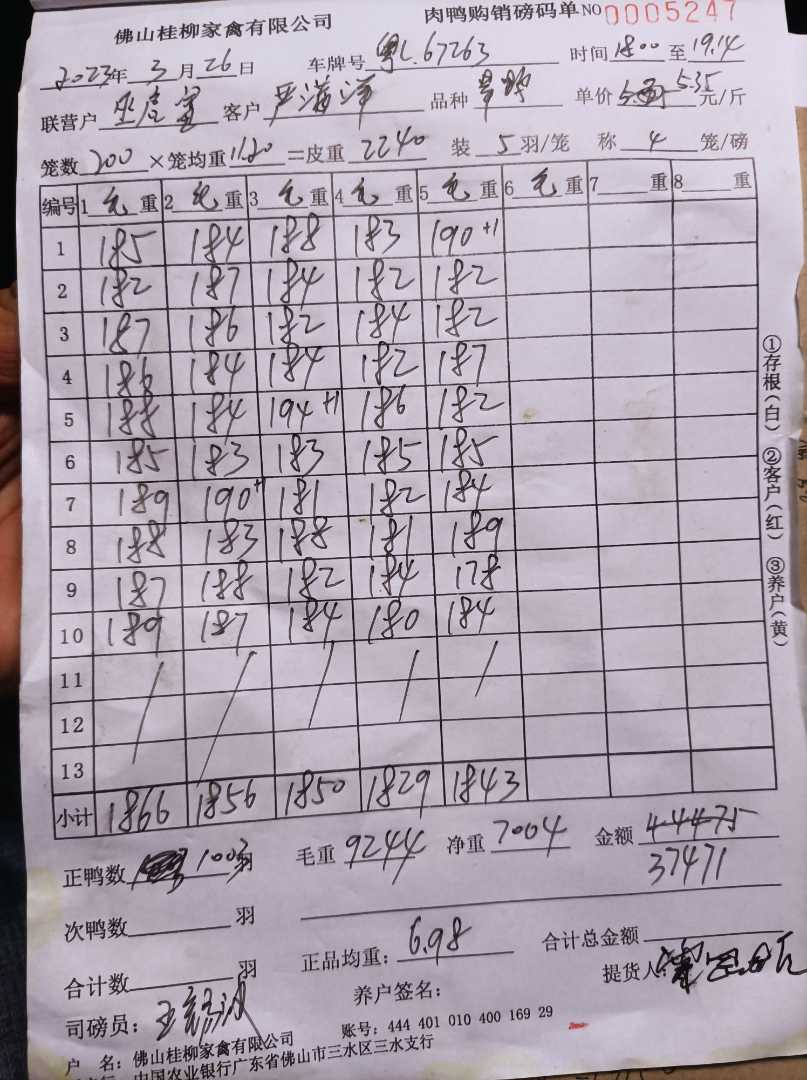 佛山桂柳家禽有限公司 肉鸭购销磅码单 NO 0005247
2023年 3月 26日 车牌号 粤L.67263 时间 1800 至 19.14
联营户 客户 严海洋 品种 单价 5.35 元/斤
笼数 200 ×笼均重 11.20 =皮重 2240 装 5 羽/笼 称 4 笼/磅
编号 1 毛 重 2 毛 重 3 毛 重 4 毛 重 5 毛 重 6 毛 重 7 重 8 重
1 185 184 188 183 190+1
2 182 187 184 182 182
3 187 186 182 184 182
4 186 184 184 182 187
5 188 184 194+1 186 182
6 185 183 183 185 185
7 189 190+1 181 182 184
8 188 183 188 181 189
9 187 188 182 184 178
10 189 187 184 180 184
11 / / / / /
12
13
小计 1866 1856 1850 1829 1843
正鸭数 1003 羽 毛重 9244 净重 7004 金额 44475
37471
次鸭数 羽
合计数 羽 正品均重: 6.98 合计总金额
司磅员: 养户签名: 提货人:
户 名: 佛山桂柳家禽有限公司 账号: 444 401 010 400 169 29
中国农业银行广东省佛山市三水区三水支行
①存根(白) ②客户(红) ③养户(黄)